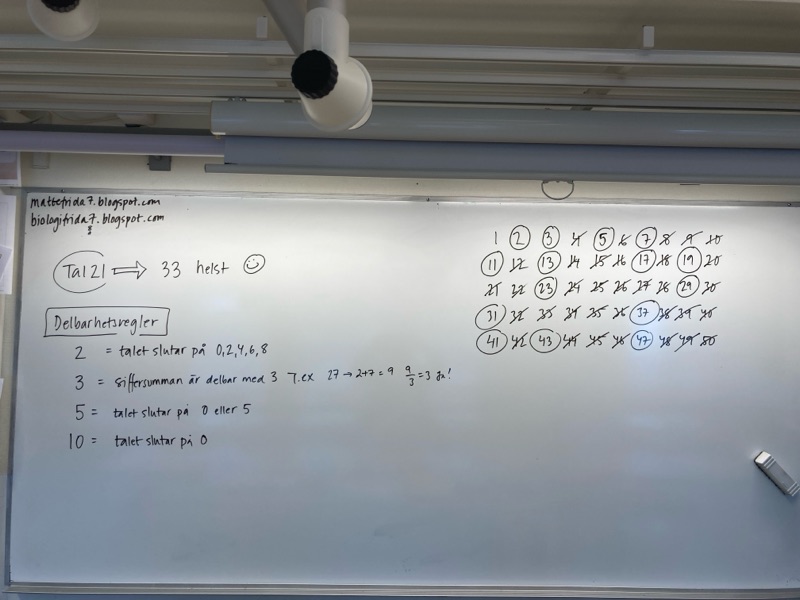 mattefrida7.blogspot.com
biologifrida7.blogspot.com
8
Tal 21 ⇒ 33 helst ☺
Delbarhetsregler
2 = talet slutar på 0,2,4,6,8
3 = siffersumman är delbar med 3 T.ex 27 → 2+7 = 9 9/3 = 3 ja!
5 = talet slutar på 0 eller 5
10 = talet slutar på 0
1 2 3 4 5 6 7 8 9 10
11 12 13 14 15 16 17 18 19 20
21 22 23 24 25 26 27 28 29 30
31 32 33 34 35 36 37 38 39 40
41 42 43 44 45 46 47 48 49 50